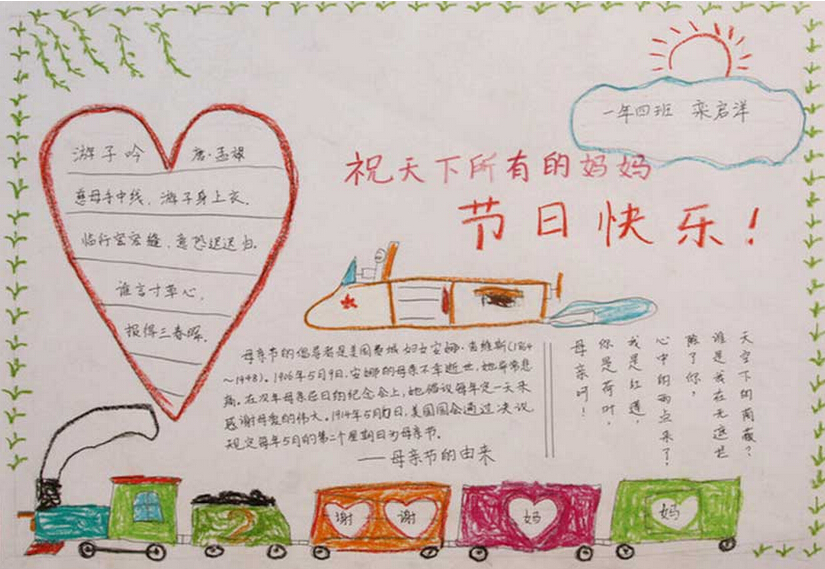 一年四班 栾启洋
祝天下所有的妈妈
节日快乐!
游子吟 唐·孟郊
慈母手中线,游子身上衣。
临行密密缝,意恐迟迟归。
谁言寸草心,
报得三春晖。
母亲节的倡导者是美国费城妇女安娜·吉维斯(1864
~1948)。1906年5月9日,安娜的母亲不幸逝世,她非常悲
痛。在次年母亲忌日的纪念会上,她倡议每年定一天来
感谢母爱的伟大。1914年5月日,美国国会通过决议
规定每年5月的第二个星期日为母亲节。
——母亲节的由来
母亲呵!
你是荷叶,
我是红莲,
心中的雨点来了!
除了你,
谁是我在无遮拦
天空下的荫蔽?
2
谢 谢 妈 妈